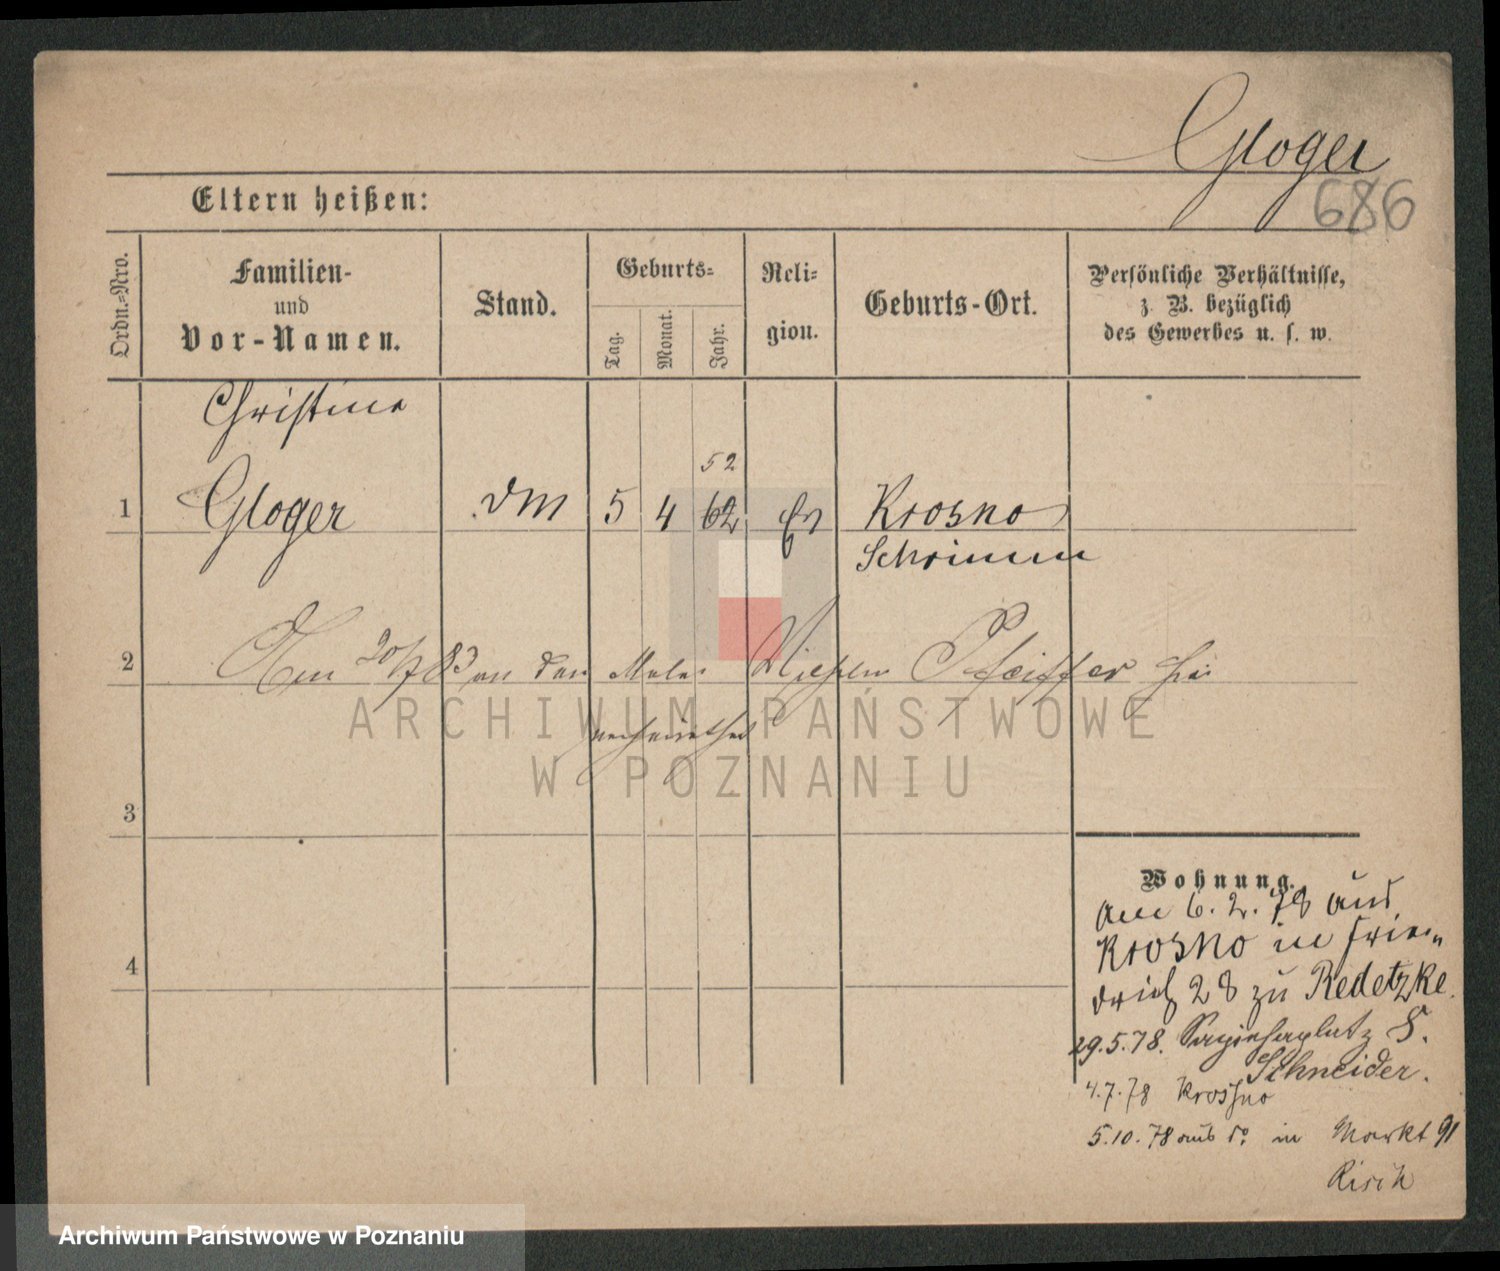 Gloger
686
Eltern heißen:
Ordn.=Nro.
Familien-
und
Vor-Namen.
Stand.
Geburts=
Tag.
Monat.
Jahr.
Reli=
gion.
Geburts-Ort.
Persönliche Verhältnisse,
z. B. bezüglich
des Gewerbes u. s. w.
Christine
52
1 Gloger DM 5 4 62 Ev Krosno
Schrimm
2 Am 20/7 83 an den Maler Pfeiffer hier
verheirathet
3
4
Wohnung.
Am 6. 2. 78 aus
Krosno in Frie-
drich 28 zu Redetzke.
29.5.78. Sapiehaplatz 8.
Schneider.
4.7.78 Krosno
5.10.78 aus do in Markt 91
Risch
ARCHIWUM PAŃSTWOWE
W POZNANIU
Archiwum Państwowe w Poznaniu